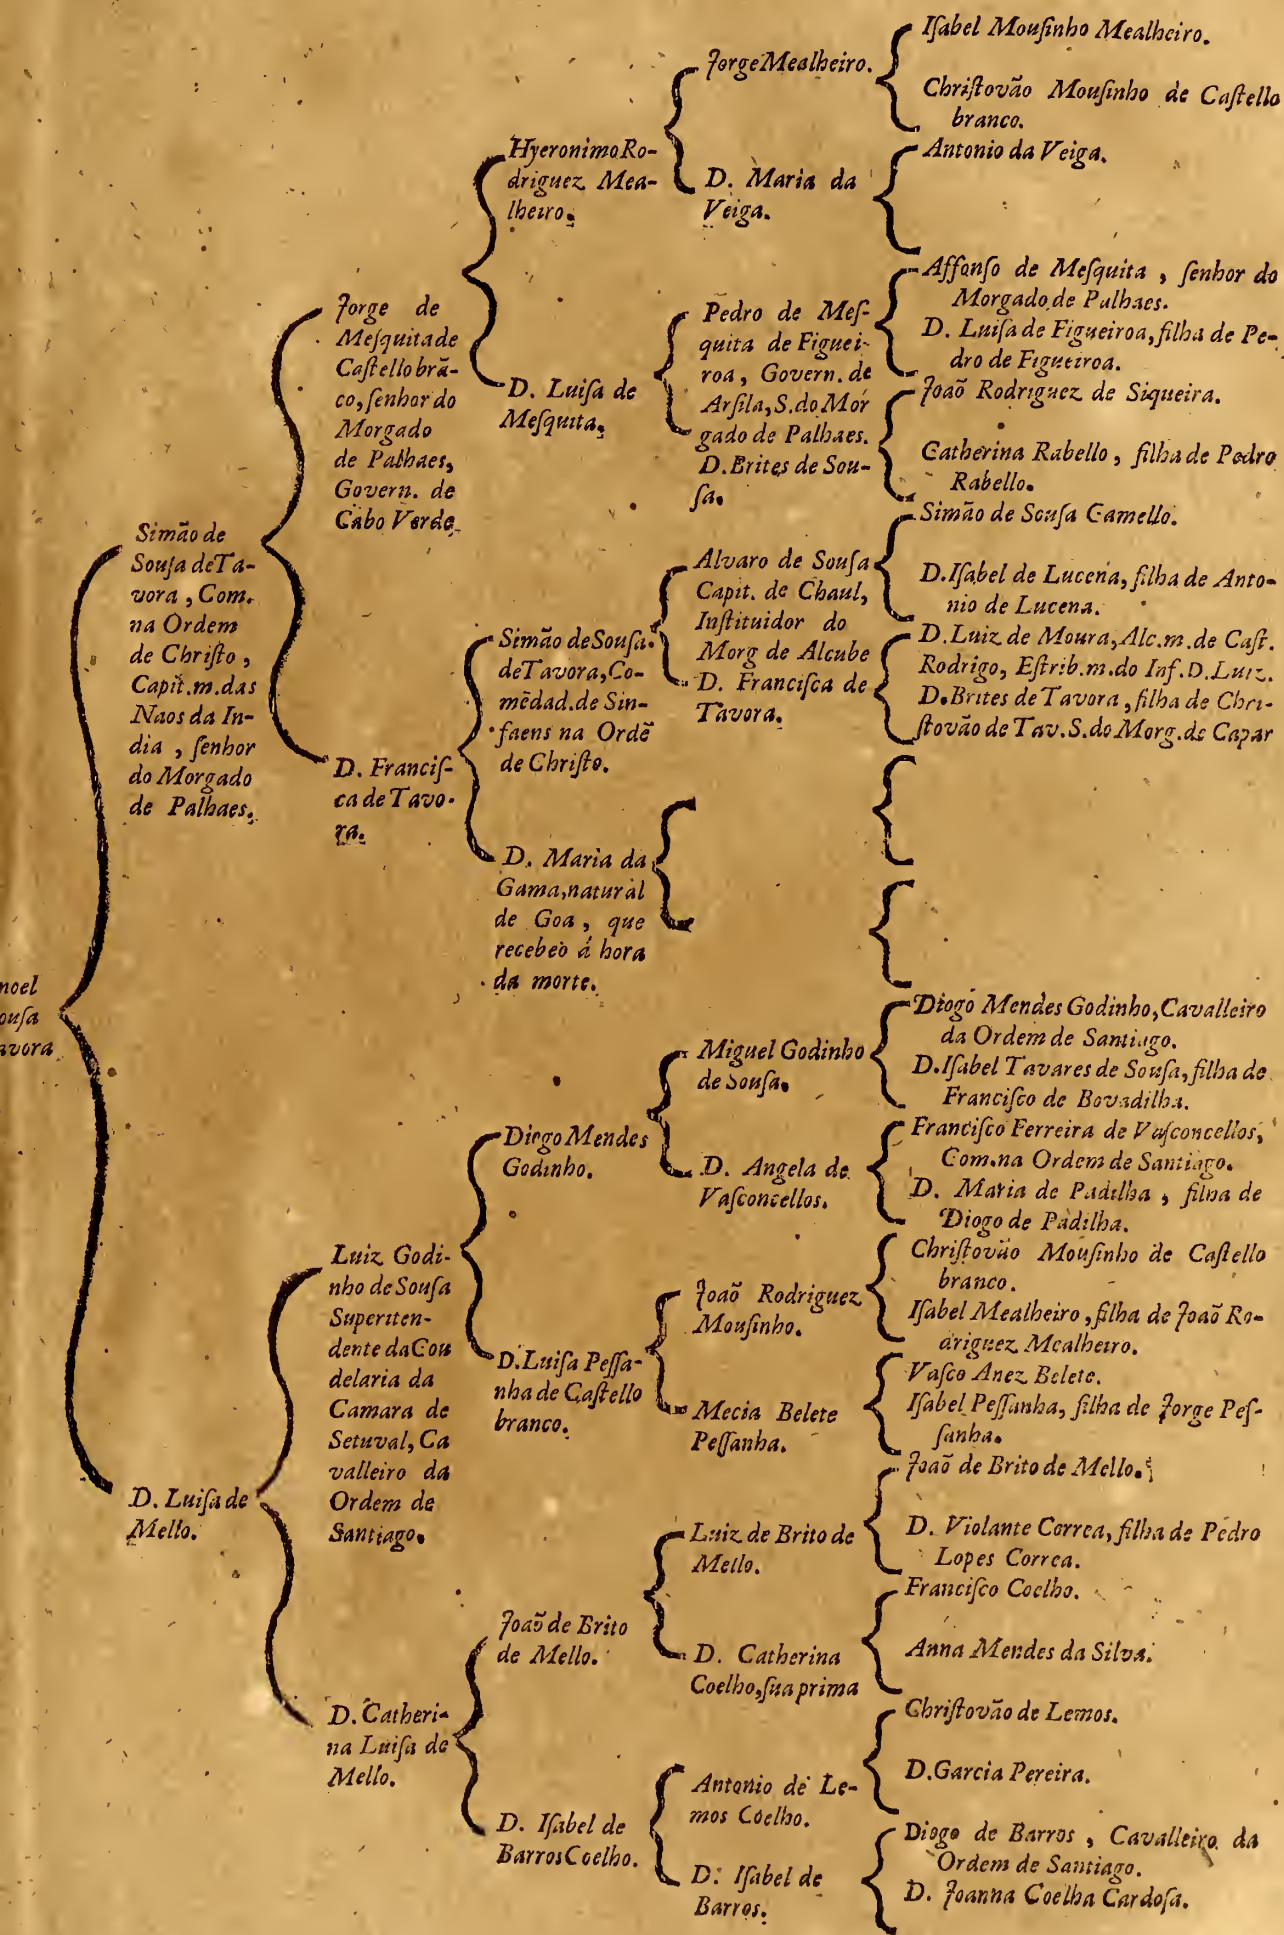 noel
ousa
avora
Simão de
Sousa de Ta-
vora, Com.
na Ordem
de Christo,
Capit.m.das
Naos da In-
dia, senhor
do Morgado
de Palhaes.
D. Luisa de
Mello.
Jorge de
Mesquita de
Castello brã-
co, senhor do
Morgado
de Palhaes,
Govern. de
Cabo Verde.
D. Francis-
ca de Tavo-
ra.
Luiz Godi-
nho de Sousa
Superiten-
dente da Cou
delaria da
Camara de
Setuval, Ca
valleiro da
Ordem de
Santiago.
D. Catheri-
na Luisa de
Mello.
Hyeronimo Ro-
driguez Mea-
lheiro.
D. Luisa de
Mesquita.
Simão de Sousa
de Tavora, Co-
mẽdad. de Sin-
faens na Ordẽ
de Christo.
D. Maria da
Gama, natural
de Goa, que
recebeo á hora
da morte.
Diogo Mendes
Godinho.
D. Luisa Pessa-
nha de Castello
branco.
Joaõ de Brito
de Mello.
D. Isabel de
Barros Coelho.
Jorge Mealheiro.
D. Maria da
Veiga.
Pedro de Mes-
quita de Figuei-
roa, Govern. de
Arsila, S. do Mor
gado de Palhaes.
D. Brites de Sou-
sa.
Alvaro de Sousa
Capit. de Chaul,
Instituidor do
Morg de Alcube
D. Francisca de
Tavora.
Miguel Godinho
de Sousa.
D. Angela de
Vasconcellos.
Joaõ Rodriguez
Mousinho.
Mecia Belete
Pessanha.
Luiz de Brito de
Mello.
D. Catherina
Coelho, sua prima
Antonio de Le-
mos Coelho.
D. Isabel de
Barros.
Isabel Mousinho Mealheiro.
Christovão Mousinho de Castello
branco.
Antonio da Veiga.
Affonso de Mesquita, senhor do
Morgado de Palhaes.
D. Luisa de Figueiroa, filha de Pe-
dro de Figueiroa.
Joaõ Rodriguez de Siqueira.
Catherina Rabello, filha de Pedro
Rabello.
Simão de Sousa Camello.
D. Isabel de Lucena, filha de Anto-
nio de Lucena.
D. Luiz de Moura, Alc.m. de Cast.
Rodrigo, Estrib.m. do Inf. D. Luiz.
D. Brites de Tavora, filha de Chri-
stovão de Tav. S. do Morg. de Capar
Diogo Mendes Godinho, Cavalleiro
da Ordem de Santiago.
D. Isabel Tavares de Sousa, filha de
Francisco de Bovadilha.
Francisco Ferreira de Vasconcellos,
Com. na Ordem de Santiago.
D. Maria de Padilha, filha de
Diogo de Padilha.
Christovão Mousinho de Castello
branco.
Isabel Mealheiro, filha de Joaõ Ro-
driguez Mealheiro.
Vasco Anez Belete.
Isabel Pessanha, filha de Jorge Pes-
sanha.
Joaõ de Brito de Mello.
D. Violante Correa, filha de Pedro
Lopes Correa.
Francisco Coelho.
Anna Mendes da Silva.
Christovão de Lemos.
D. Garcia Pereira.
Diogo de Barros, Cavalleiro da
Ordem de Santiago.
D. Joanna Coelha Cardosa.